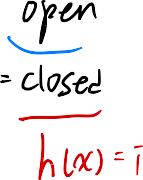 open
= closed
h(x) =